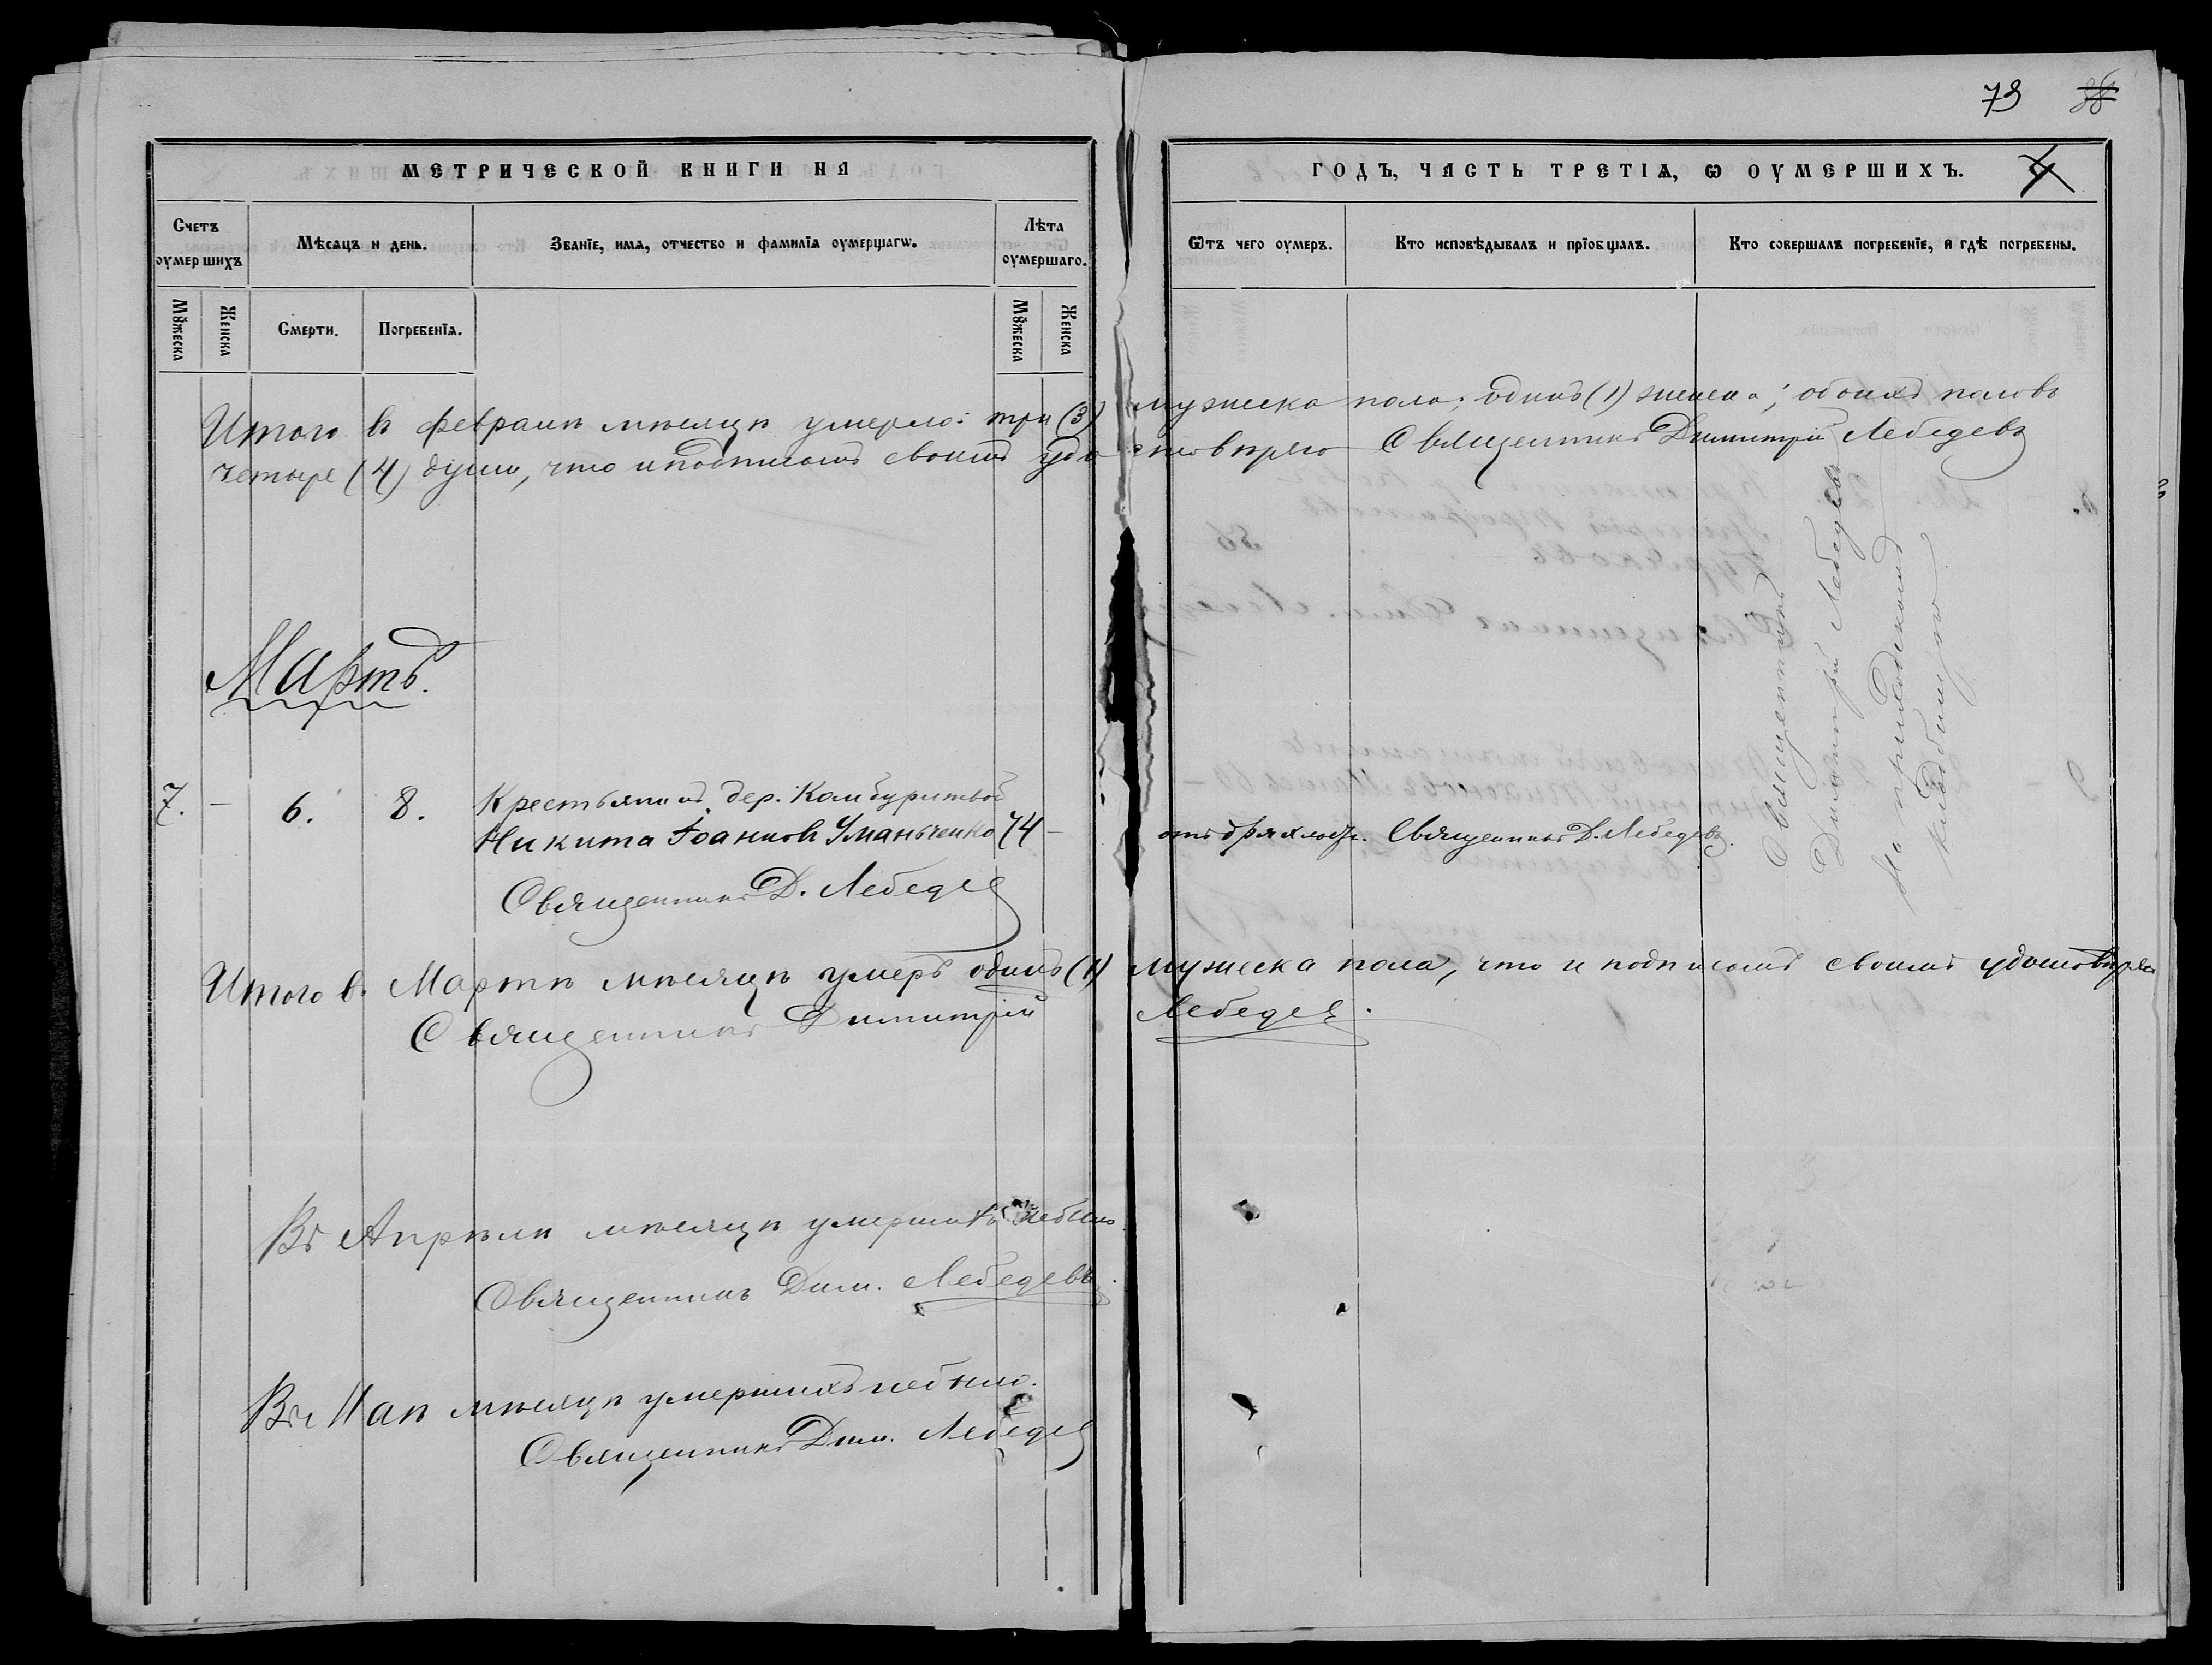 73
МЕТРИЧЕСКОЙ КНИГИ НА
ГОДЪ, ЧАСТЬ ТРЕТІѦ, Ѡ ОУМЕРШИХЪ. 4
Счетъ оумершихъ
Мѣсяцъ и день.
Званїе, имѧ, отчество и фамилїѧ оумершагѡ.
Лѣта оумершаго.
Ѿтъ чего оумеръ.
Кто исповѣдывалъ и прїобщалъ.
Кто совершалъ погребенїе, и гдѣ погребены.
Мꙋжеска
Женска
Смерти.
Погребенїѧ.
Мꙋжеска
Женска
Итого въ февралѣ мѣсяцѣ умерло: три (3) мужеска пола; одинъ (1) женска; обоихъ половъ
четыре (4) души, что и подписомъ своимъ удостовѣряю Священникъ Димитрій Лебедевъ
Мартъ.
7. — 6. 8. Крестьянинъ дер. Камбуритвой
Никита Іоанновъ Уманьченко 74 — отъ дряхлости. Священникъ Д. Лебедевъ.
Священникъ Д. Лебедев
Священникъ
Димитрій Лебедевъ
На приходскомъ
кладбищѣ
Итого въ Мартѣ мѣсяцѣ умеръ одинъ (1) мужеска пола, что и подписомъ своимъ удостовѣряю
Священникъ Димитрій Лебедев.
Въ Апрѣлѣ мѣсяцѣ умершихъ небыло
Священникъ Дим. Лебедевъ.
Въ Маѣ мѣсяцѣ умершихъ небыло.
Священникъ Дим. Лебедев